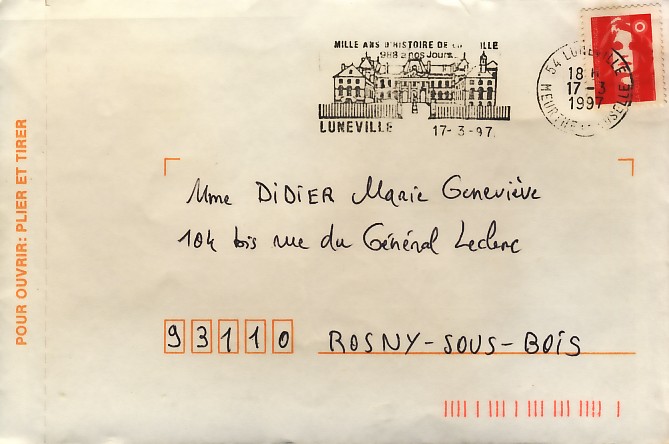 MILLE ANS D'HISTOIRE DE LA VILLE
988 à nos Jours
LUNEVILLE 17-3-97.
54 LUNEVILLE
18 H
17-3
1997
MEURTHE ET MOSELLE
POUR OUVRIR: PLIER ET TIRER
Mme DIDIER Marie Geneviève
104 bis rue du Général Leclerc
93110 ROSNY-SOUS-BOIS